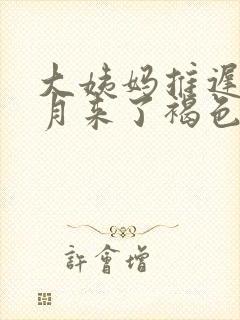 大姨妈推迟
月来了褐色
許會增